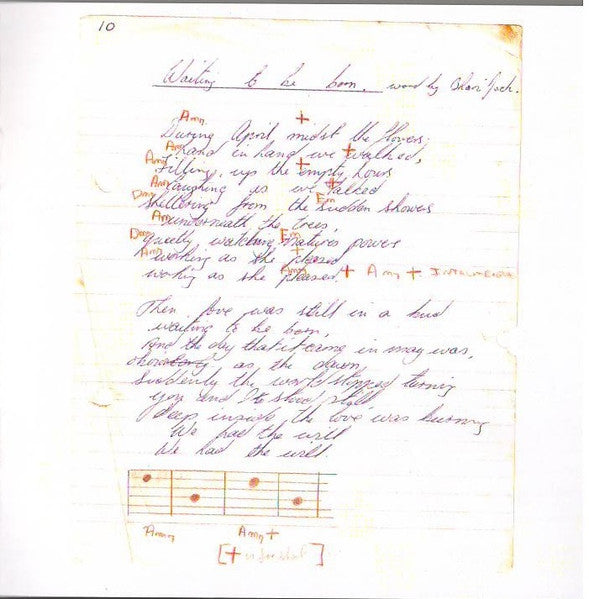 10
Waiting to be born. word by
Am7 +
During April midst the flowers.
Am7 +
hand in hand we walked,
Am7 +
Filling, up the empty hours
Am7 +
laughing as we talked
Dm7 Em
Sheltering from the sudden showers
Am7
underneath the trees,
Dm7 Em
quietly watching natures power
Am7 +
working as she pleased
Am7 + Am7 +
working as she pleased.
Then love was still in a bud
waiting to be born,
And the day that it came in may was,
as the dawn,
Suddenly the world stopped turning
You and I stood still,
deep inside the love was burning
We had the will
We had the will.
Am7 Am7 +
[+ is for ]